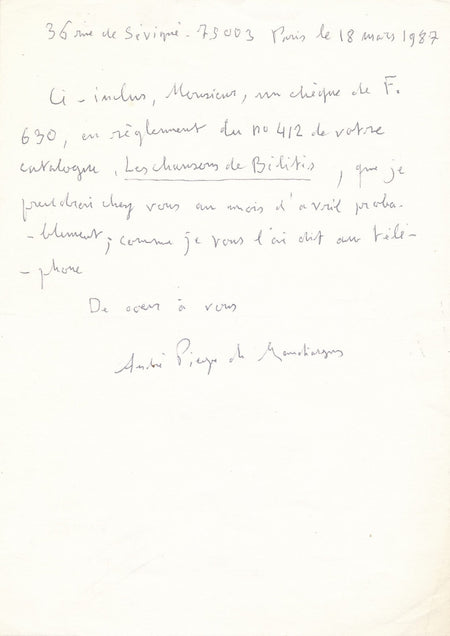 36 rue de Sévigné. 75003 Paris le 18 mars 1987
Ci-inclus, Monsieur, un chèque de F.
630, en règlement du no 412 de votre
catalogue, Les chansons de Bilitis, que je
prendrai chez vous au mois d'avril proba-
-blement, comme je vous l'ai dit au télé-
-phone
De coeur à vous
André Pieyre de Mandiargues